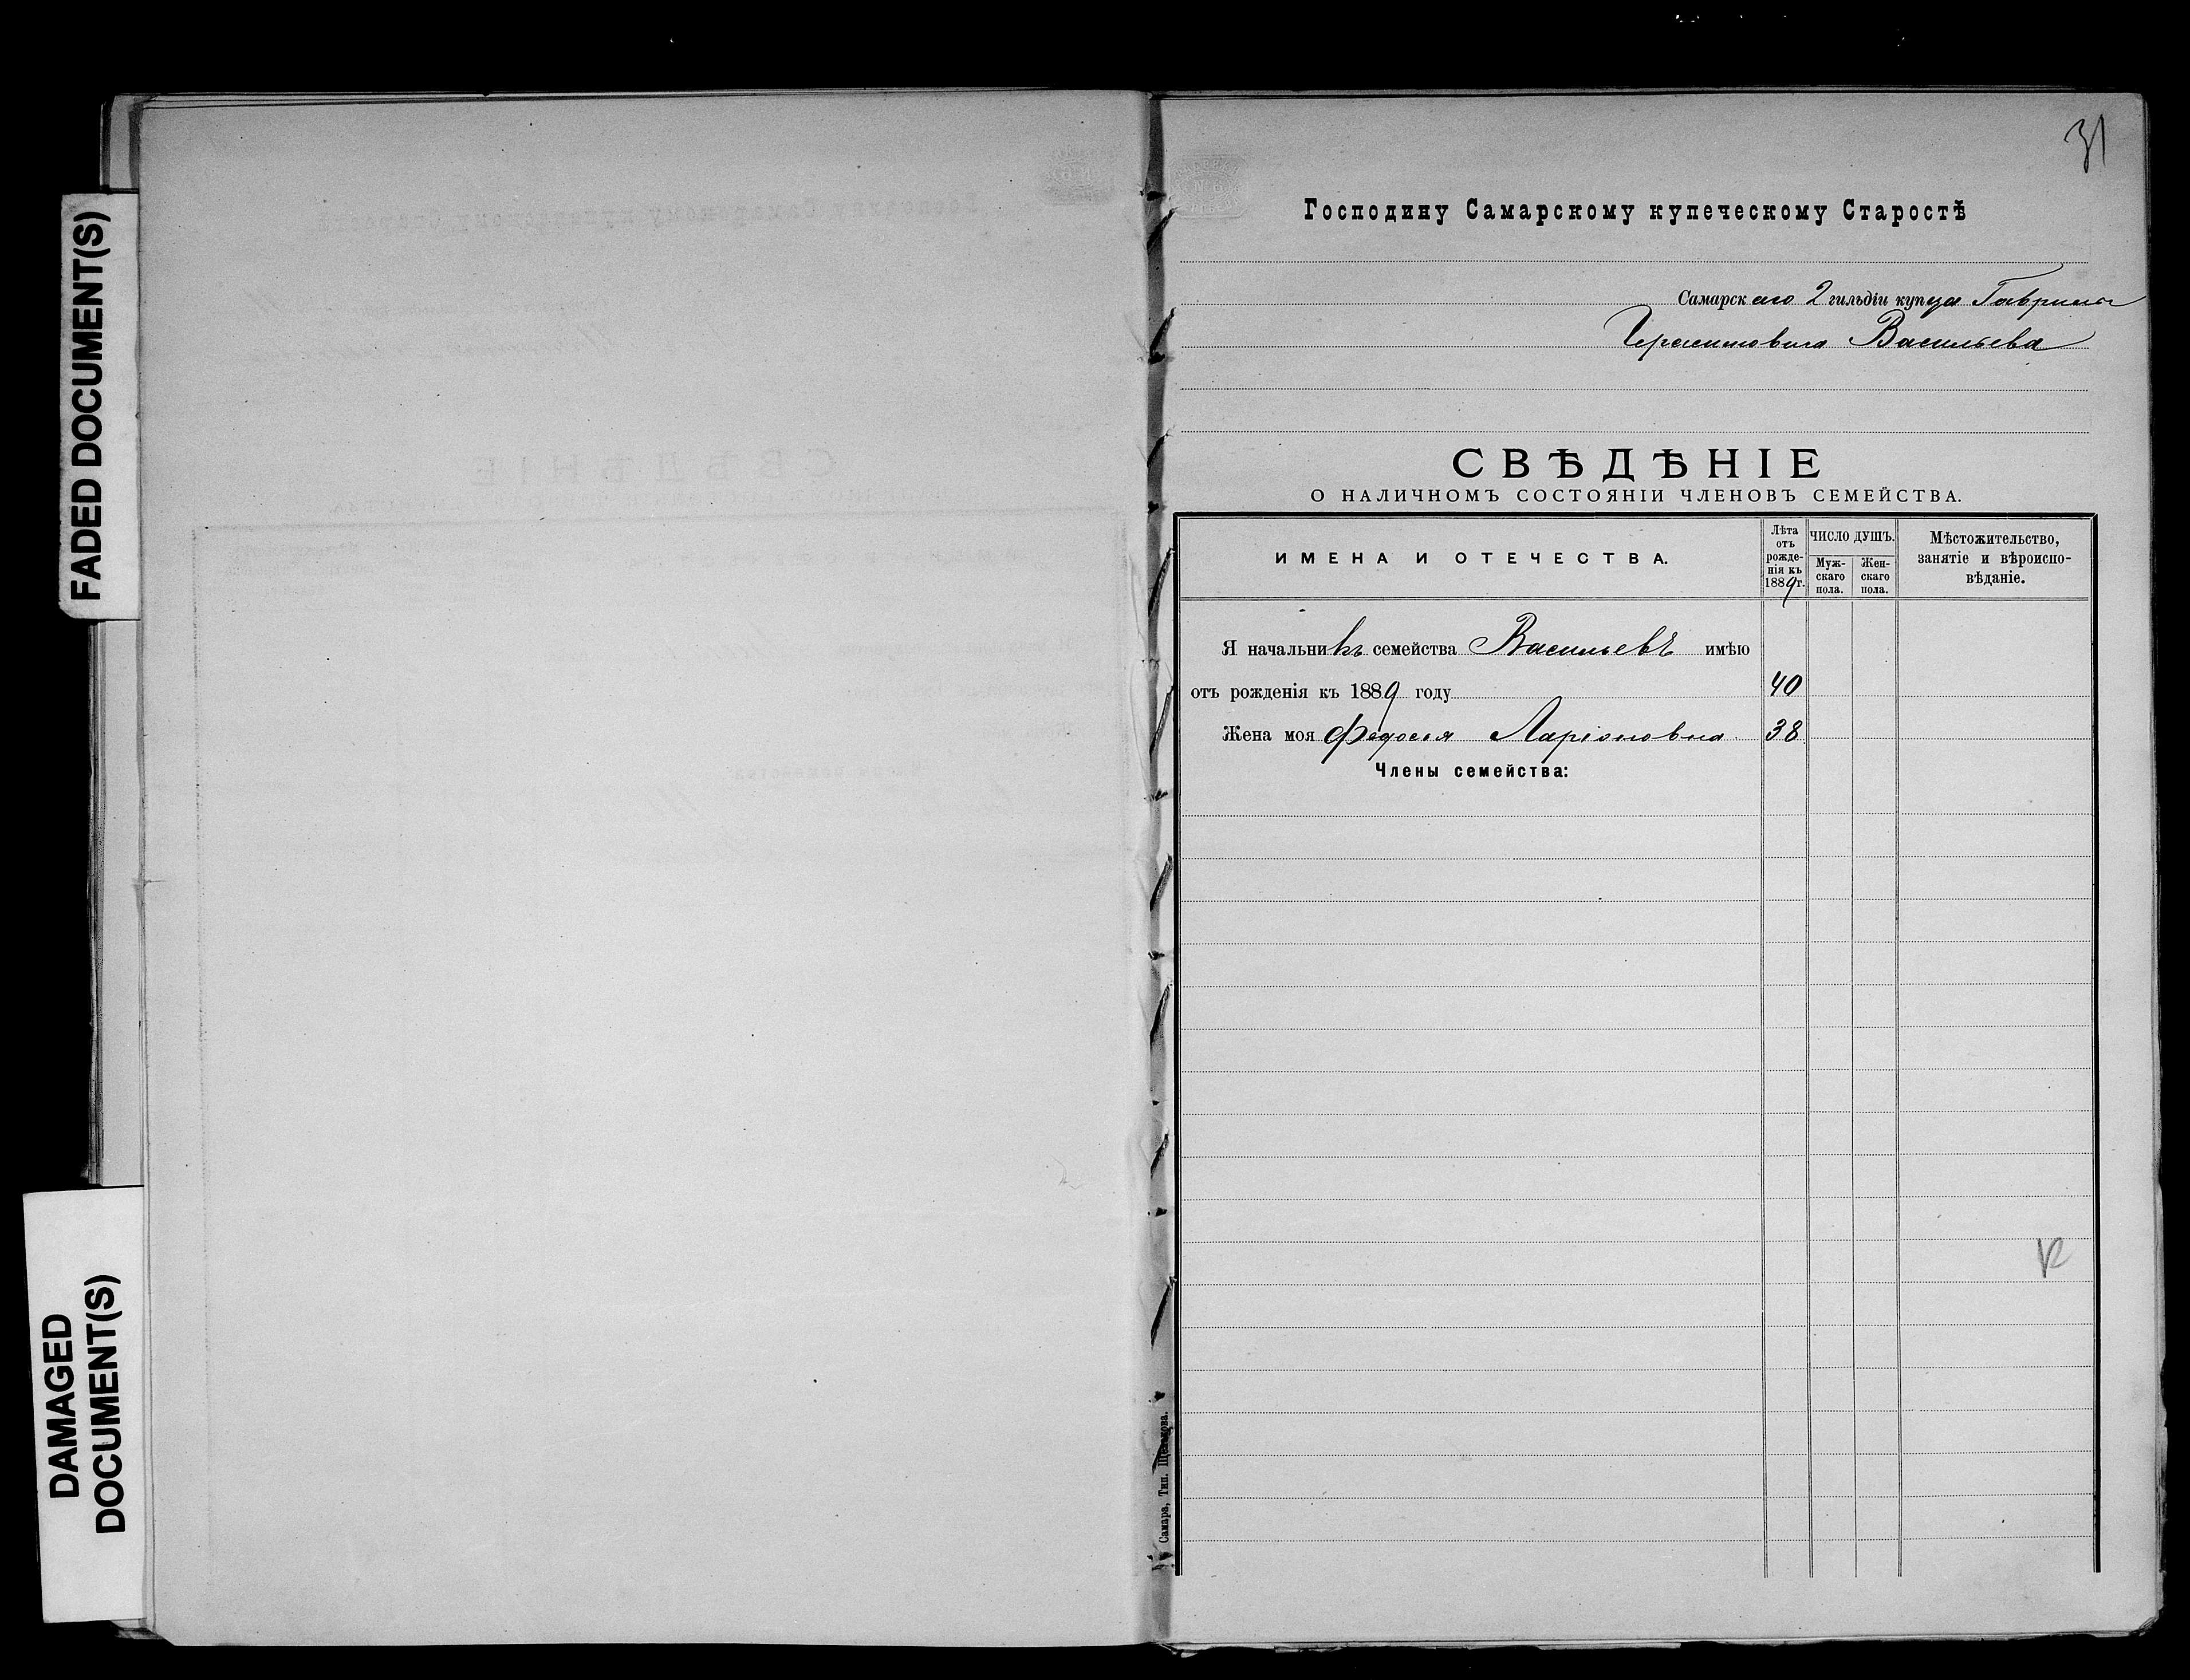 FADED DOCUMENT(S)
DAMAGED
DOCUMENT(S)
31
Господину Самарскому купеческому Старостѣ
Самарскаго 2 гильдіи купца Гаврила
Герасимовича Васильева
СВѢДѢНІЕ
О НАЛИЧНОМЪ СОСТОЯНІИ ЧЛЕНОВЪ СЕМЕЙСТВА.
ИМЕНА И ОТЕЧЕСТВА.
Лѣта
отъ
рожде-
нія къ
1889 г.
ЧИСЛО ДУШЪ.
Муж-
скаго
пола.
Жен-
скаго
пола.
Мѣстожительство,
занятіе и вѣроиспо-
вѣданіе.
Я начальникъ семейства Васильевъ имѣю
отъ рожденія къ 1889 году 40
Жена моя Федосья Ларіоновна 38
Члены семейства:
Самара, Тип. Щелокова.